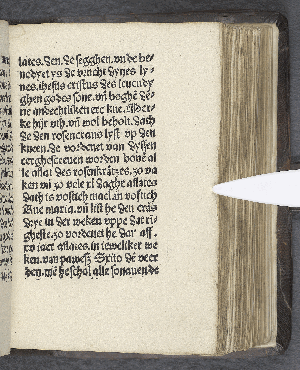 lates. den. de segghen. vnde be
nedyet ys de vrucht dynes ly-
nes. ihesus cristus des leuendy
ghen godes sone. vn beghe de-
ne andechtliken ere kne. Alder-
ke hijr vth. vn wol beholt. dath
de den rosencrans lyst vp den
kneen. de vordenet van dyssen
vorghescreuen worden bouen al
le aflat des rosenkrätzes. so va
ken vn so vele xl daghe aflates
dath is vofftich mael an vofftich
Aue maria. vn list he den crans
drye in der weken vppe dat ri-
gheste. so vordenet he dar aff.
iaer aflates. in ieweliker we
ken. van pawesz Sixto de veer
den. wente he schal alle sonauende